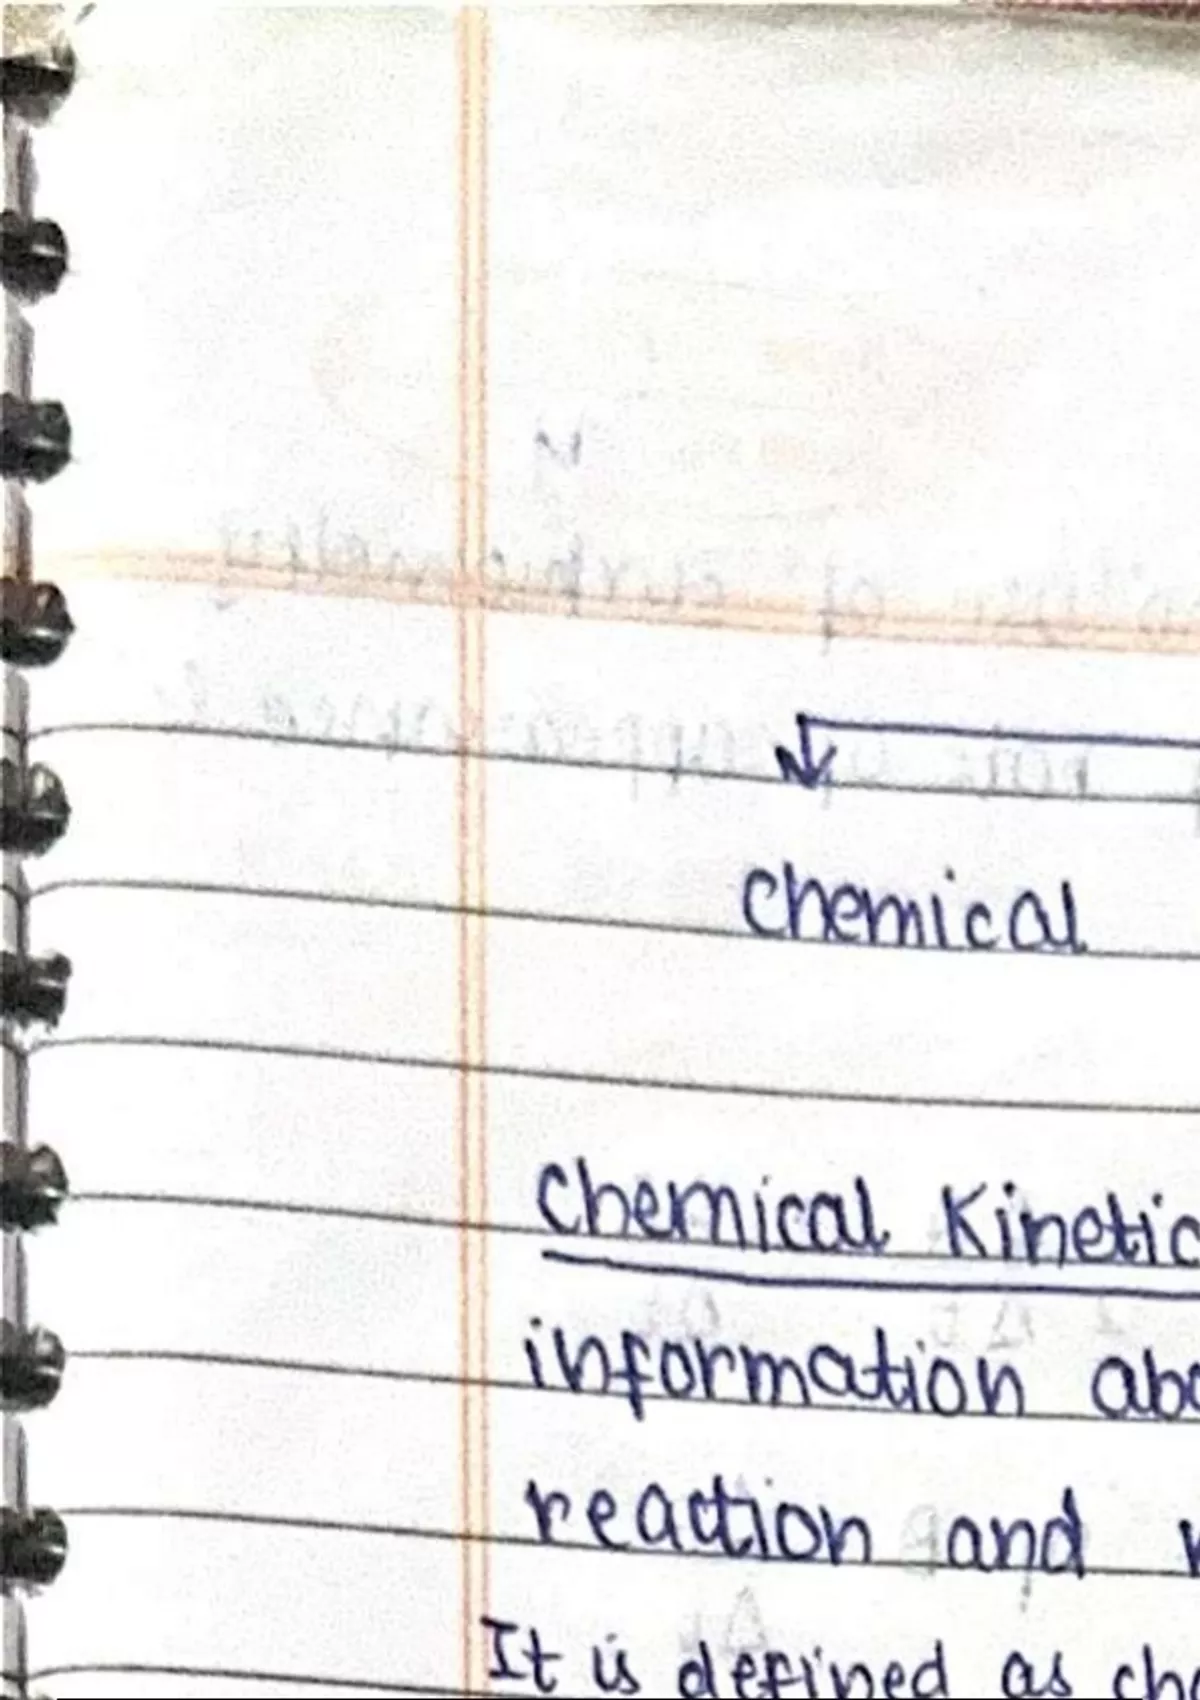 Chemical
Chemical Kinetic
information abo
reaction and
It is defined as che